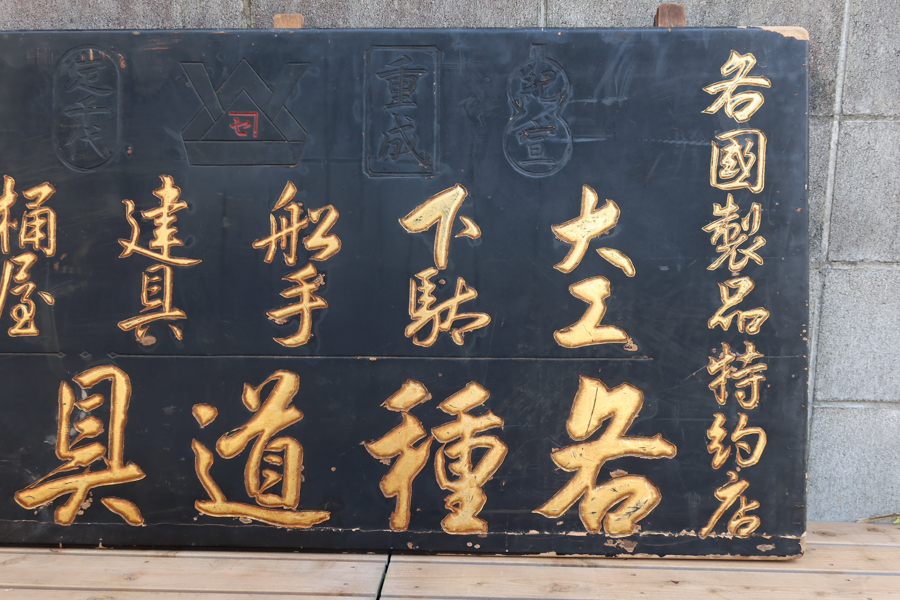 各國製品特約店
大工
下駄
船手
建具
桶屋
各種道具
重成